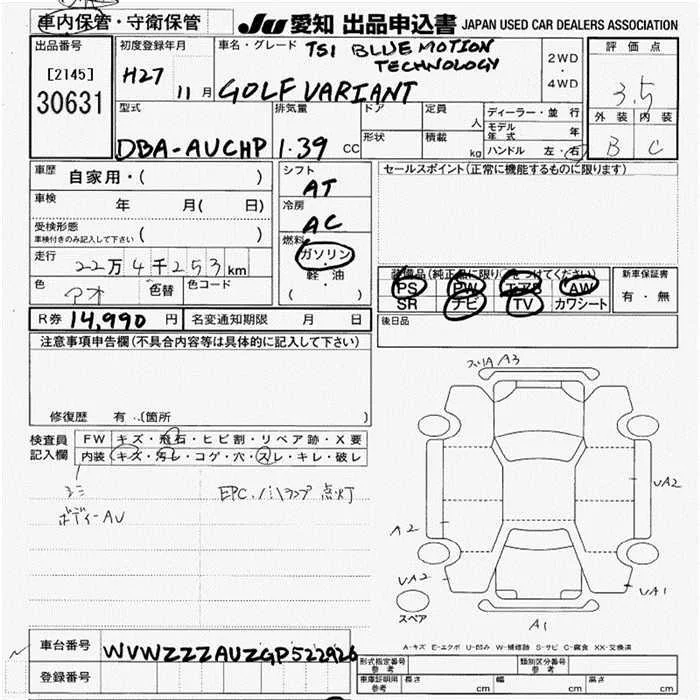 車内保管・守衛保管
JU 愛知 出品申込書 JAPAN USED CAR DEALERS ASSOCIATION
出品番号
[2145]
30631
初度登録年月
H27 11月
車名・グレード TSI BLUE MOTION
TECHNOLOGY
GOLF VARIANT
2WD
・
4WD
評価点
3.5
外装 内装
B C
型式
DBA-AUCHP
排気量
1.39 CC
ドア
形状
定員
人
積載
kg
ディーラー・並行
モデル年式 年
ハンドル 左・右
車歴
自家用・( )
車検
年 月( 日)
受検形態
車検付きのみ記入して下さい ( )
走行
22万4千253km
色
アオ
色替
色コード
シフト
AT
冷房
AC
燃料
ガソリン
・
軽・油
( )
セールスポイント(正常に機能するものに限ります)
装備品(純正品に限り○をつけてください)
PS PW エアB AW
SR ナビ TV カワシート
新車保証書
有・無
R券 14,990 円
名変通知期限 月 日
後日品
注意事項申告欄(不具合内容等は具体的に記入して下さい)
修復歴 有・(箇所 )
検査員
記入欄
FW キズ・飛石・ヒビ割・リペア跡・X要
内装 キズ・汚レ・コゲ・穴・スレ・キレ・破レ
EPC、ハイランプ 点灯
ボディーAU
スリA A3
UA2
A2
UA2
UA1
A1
スペア
A-キズ E-エクボ U-凹み W-補修跡 S-サビ C-腐食 XX-交換済
車台番号
WVWZZZAUZGP522926
登録番号
形式指定番号
参考
類別区分番号
参考
車庫証明用
参考
長さ cm
幅 cm
高さ cm